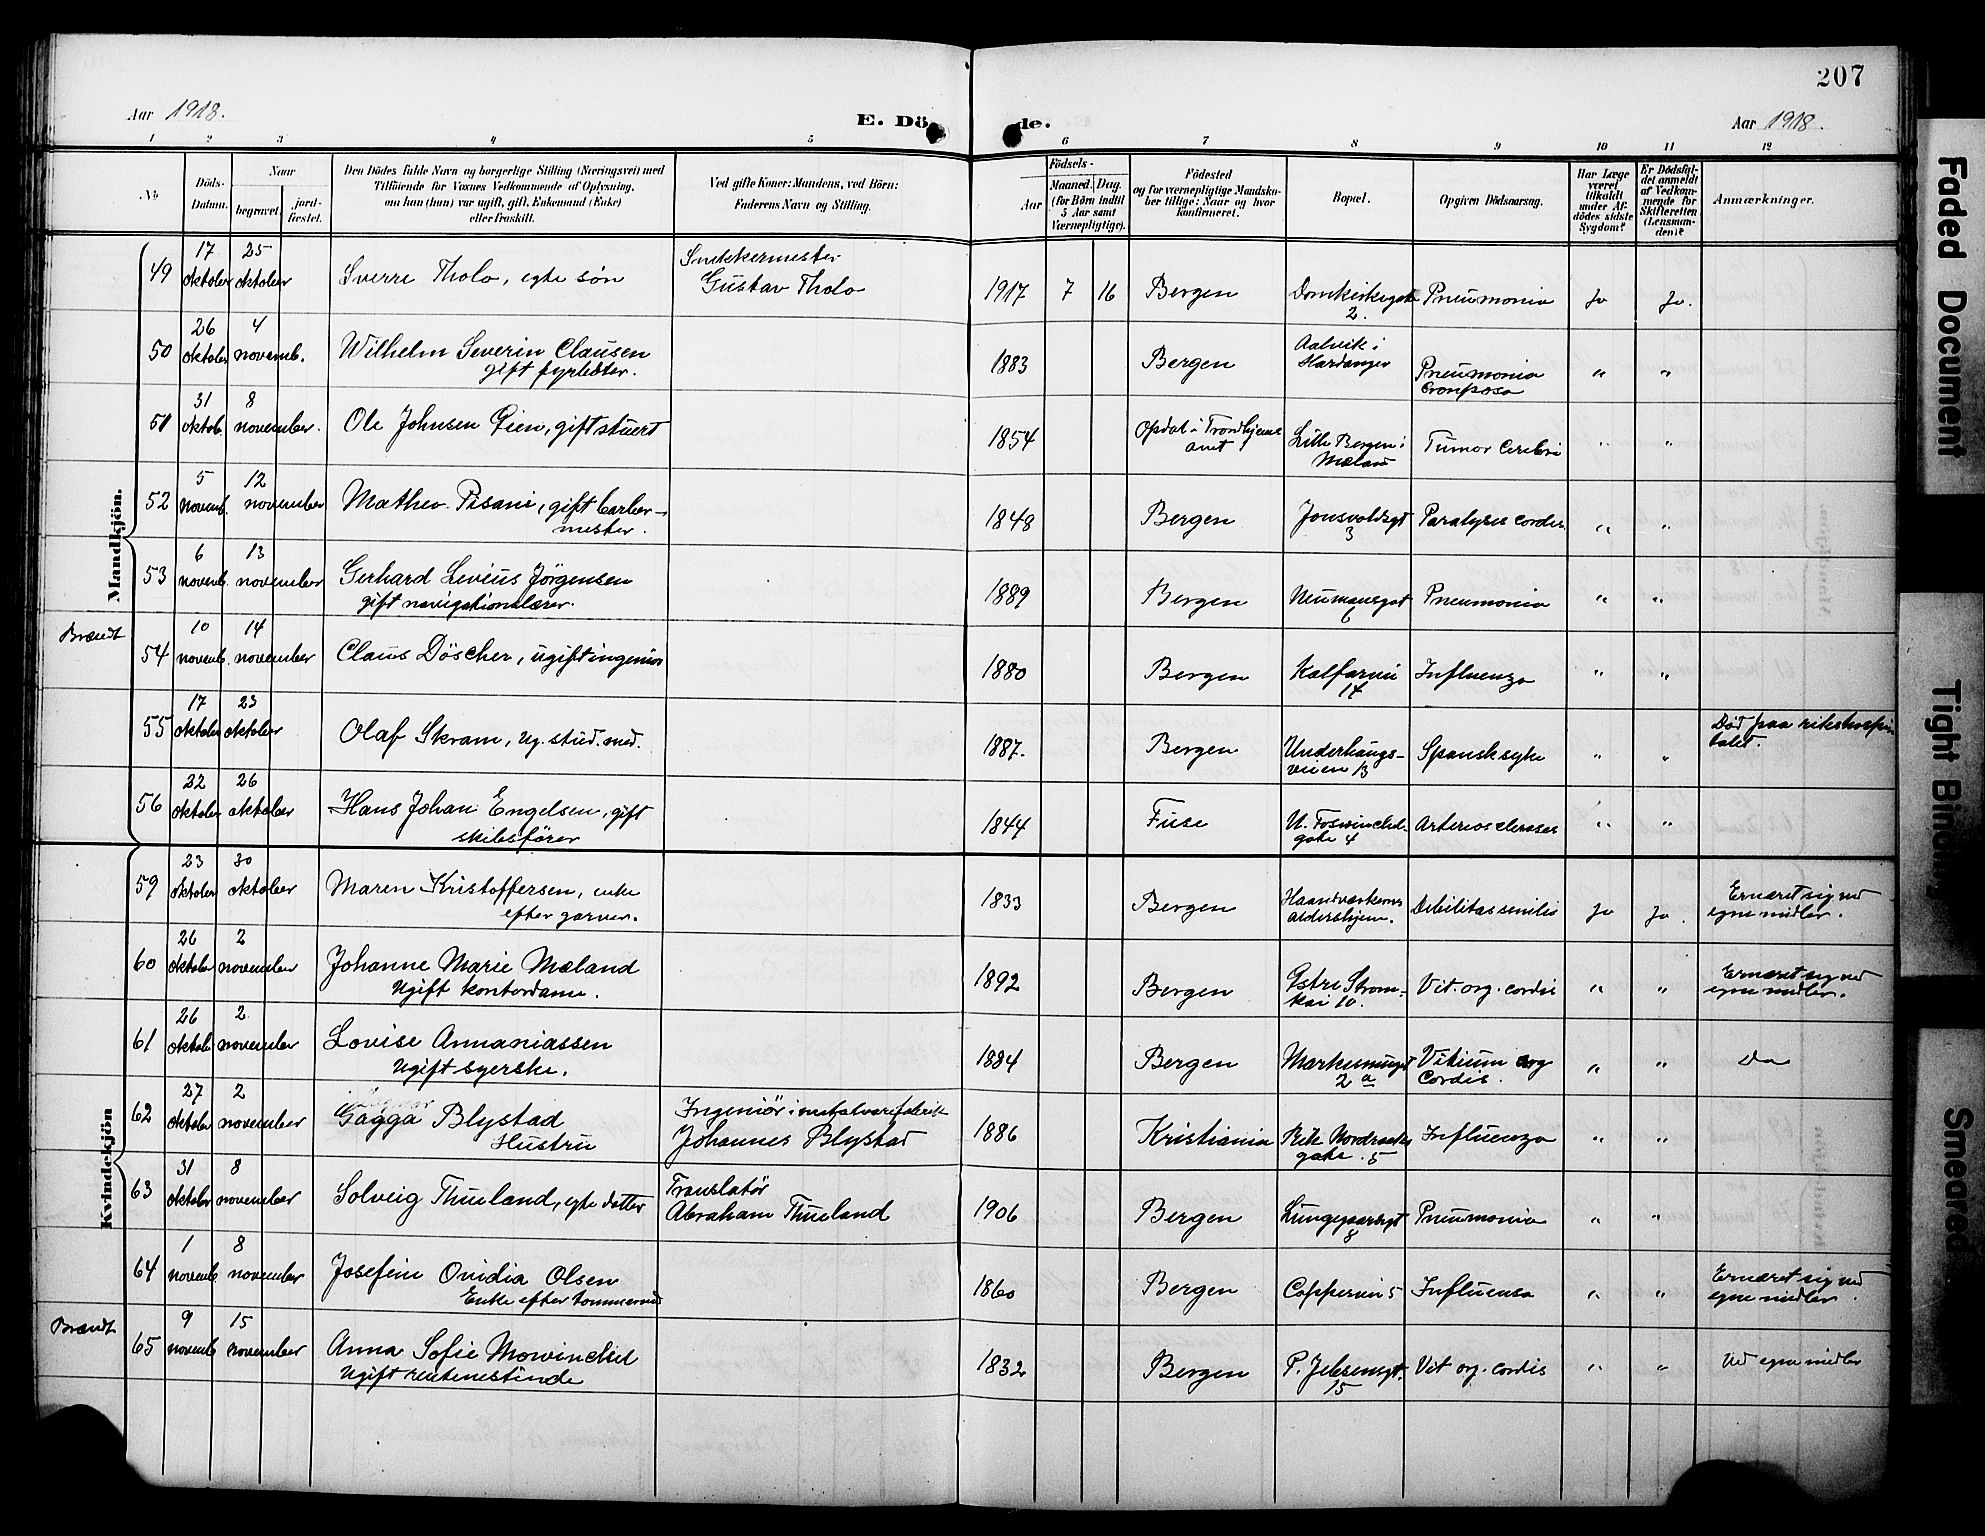 207
Aar 1918.
E. Döde.
Aar 1918.
1 2 3 4 5 6 7 8 9 10 11 12
No
Döds-Datum.
Naar
begravet
jord-fæstet.
Den Dödes fulde Navn og borgerlige Stilling (Næringsvei) med
Tilföiende for Voxnes Vedkommende af Oplysning,
om han (hun) var ugift, gift, Enkemand (Enke)
eller fraskilt.
Ved gifte Koner: Mandens, ved Börn:
Faderens Navn og Stilling.
Födsels-
Aar
Maaned. Dag.
(for Börn indtil
5 Aar samt
Værnepligtige).
Födested
og for værnepligtige Mandska-
ber tillige: Naar og hvor
konfirmeret.
Bopæl.
Opgiven Dödsaarsag.
Har Læge
været
tilkaldt
under Af-
dödes sidste
Sygdom?
Er Dödsfal-
det anmeldt
af Vedkom-
mende for
Skifteretten
(Lensman-
den)?
Anmærkninger.
Mandkjön.
49 17 oktober 25 oktober Sverre Tholo, egte søn Snekkermester Gustav Tholo 1917 7 16 Bergen Domkirkegate 2. Pneumonia Ja Ja.
50 26 oktober 4 novemb. Wilhelm Severin Clausen gift fyrbøter. 1883 Bergen Aalvik i Hardanger Pneumonia crouposa " "
51 31 oktob. 8 november. Ole Johnsen Gien, gift stuert 1854 Opdal i Trondhjems amt Lille Bergen i Mæland Tumor Cerebri " "
52 5 novemb. 12 november Matheo Pisani, gift barber-mester. 1848 Bergen Jonsvoldsgt 3 Paralysis cordis " "
53 6 novemb. 13 november Gerhard Levius Jørgensen gift navigationslærer. 1889 Bergen Neumansgat 6 Pneumonia " "
Brændt
54 10 novemb. 14 november Claus Döscher, ugift ingeniør 1880 Bergen Kalfarvei 14 Influenza " "
55 17 oktober 23 oktober Olaf Skram, ug. stud. med. 1887. Bergen Underhaugs-veien 13 Spansksyke " " Død paa rikshospi-talet.
56 22 oktober 26 oktober Hans Johan Engelsen, gift skibsfører 1844 Fuse N. Foswinckel-gate 4 Arteriosclerose " "
Kvindekjön
59 23 oktober 30 oktober Maren Kristoffersen, enke efter garver. 1833 Bergen Haandværkernes aldershjem. Debilitas senilis Ja Ja. Ernæret sig ved egne midler.
60 26 oktober 2 november Johanne Marie Mæland Ugift kontordame. 1892 Bergen Østre Strøm-kai 10. Vit. org. cordis " " Ernæret sig ved egne midler.
61 26 oktober 2 november Lovise Annaniassen Ugift syerske. 1884 Bergen Markeveiugt 2 a Vitium org Cordis. " " Do
62 27 oktober 2 november Gagga Blystad Hustru Ingeniør i metalvarefabrik Johannes Blystad 1886 Kristiania Rik. Nordraaks gate. 5 Influenza " "
63 31 oktober 8 november Solveig Thueland, egte datter Translatør Abraham Thueland 1906 Bergen Lungegaardsgt 8 Pneumonia " "
64 1 novemb 8 november Josefine Ovidia Olsen Enke efter tømmermd 1860 Bergen Cappesvei 5 Influensa " " Ernæret sig ved egne midler.
Brændt
65 9 novemb 15 november Anna Sofie Mowinckel Ugift rentenistinde 1832 Bergen P. Jebsensgt. 15 Vit org. cordis " " Ved egne midler
Faded Document
Tight Binding
Smeared